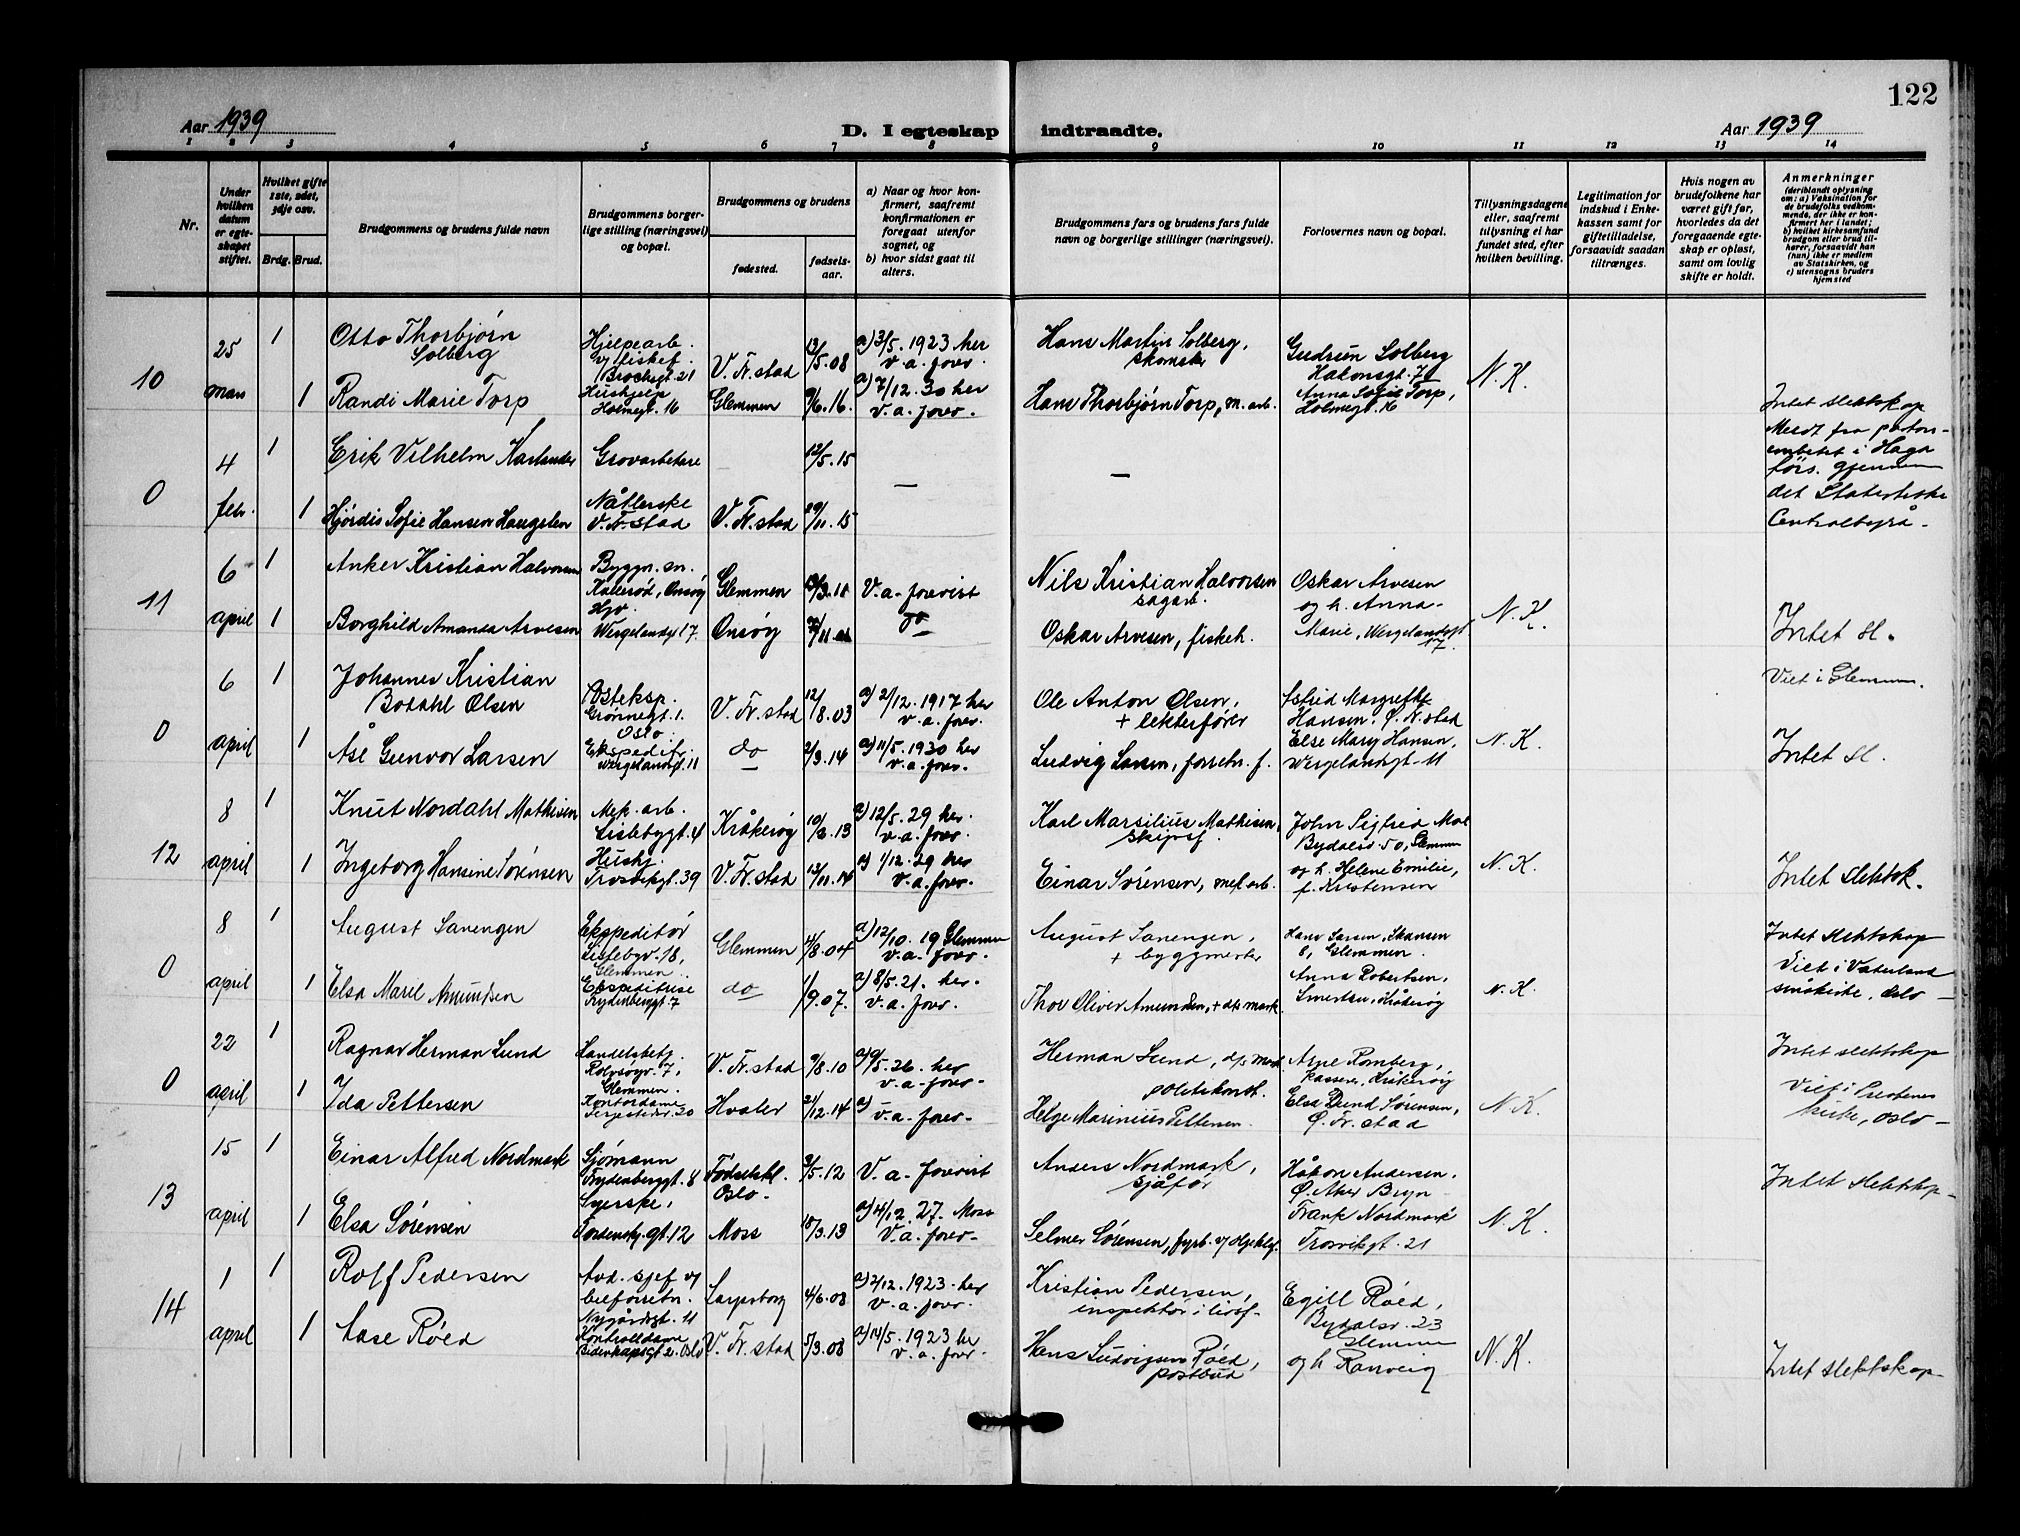 122
Aar 1939
D. I egteskap indtraadte.
Aar 1939
1 2 3 4 5 6 7 8 9 10 11 12 13 14
Nr.
Under hvilken datum er egteskapet stiftet.
Hvilket gifte 1ste, 2det, 3dje osv.
Brdg. Brud.
Brudgommens og brudens fulde navn
Brudgommens borgerlige stilling (næringsvei) og bopæl.
Brudgommens og brudens
fødested.
fødselsaar.
a) Naar og hvor konfirmert, saafremt konfirmationen er foregaat utenfor sognet, og
b) hvor sidst gaat til alters.
Brudgommens fars og brudens fars fulde navn og borgerlige stillinger (næringsvei).
Forlovernes navn og bopæl.
Tillysningsdagene eller, saafremt tillysning ei har fundet sted, efter hvilken bevilling.
Legitimation for indskud i Enkekassen samt for giftetilladelse, forsaavidt saadan tiltrænges.
Hvis nogen av brudefolkene har været gift før, hvorledes da det foregaaende egteskap er opløst, samt om lovlig skifte er holdt.
Anmerkninger
(deriblandt oplysning om: a) Vaksination for de brudefolks vedkommende, der ikke er konfirmert her i landet; b) hvilket kirkesamfund brudgom eller brud tilhører, forsaavidt han (hun) ikke er medlem av Statskirken, og c) utensogns bruders hjemsted
10
25 mars
1
Otto Thorbjørn Solberg
Hjelpearb. v/ fiskef. Brochsgt. 21
V. Fr.stad
13/5.08
a) 3/5. 1923 her v. a. forr.
Hans Martin Solberg, skomaker
Gudrun Solberg Hakonsgt. 7
N. K.
1
Randi Marie Torp
Hushjelp Holmegt. 16
Glemmen
9/6.16.
a) 7/12. 30 her v. a. forr.
Hans Thorbjørn Torp, m. arb.
Anna Sofie Torp, Holmegt. 16
Intet slektskap
0
4 febr.
1
Erik Vilhelm Karlander
Grovarbetare
12/5.15
—
—
Meldt fra pastorembetet i Hagafors. gjennem det Statistiske Centralbyrå.
1
Hjørdis Sofie Hansen Haugsten
Nåtlerske V. Fr.stad
V. Fr.stad
29/11.15
11
6 april
1
Anker Kristian Halvorsen
Byggn. sn. Kallerød, Onsøy
Glemmen
V. a. forvist
Nils Kristian Halvorsen sagarb.
Oskar Arvesen og h. Anna-Marie, Wergelandsgt 17
N. K.
Intet sl.
1
Borghild Amanda Arvesen
Hjv. Wergelandsg 17.
Onsøy
do
Oskar Arvesen, fiskeh.
0
6 april
1
Johannes Kristian Bodahl Olsen
Posteksp. Grønnegt 1. Oslo
V. Fr.stad
12/8.03
a) 2/12. 1917 her v. a. forr.
Ole Anton Olsen, + lekterfører
Astrid Margrethe Hansen, Ø. Fr.stad
N. K.
Viet i Glemmen.
1
Åse Gunvor Larsen
Ekspeditr. Wergelandsgt. 11
do
2/3.14
a) 11/5. 1930 her v. a. forr.
Ludvig Larsen, forretn. f.
Else Mary Hansen, Wergelandsgt 11
Intet sl.
12
8 april
1
Knut Nordahl Mathisen
Mek. arb. Lislebygt. 4
Kråkerøy
a) 12/5. 29 her. v. a. forr.
Karl Marsilius Mathisen, skipsf
John Sigfrid Moe Bydalsv. 50, Glemmen
N. K.
1
Ingeborg Hansine Sørensen
Hushj. Trosvikgt. 39
V. Fr.stad
13/11.14
a) 1/12. 29 her v. a. forr.
Einar Sørensen, mek arb.
og h. Helene Emilie, f. Kristensen
Intet slektsk.
0
8 april
1
August Sanengen
Ekspeditør Lislebyv. 18, Glemmen
Glemmen
4/8.04
a) 12/10. 19 Glemmen v. a. forr.
August Sanengen, + byggmester
Hans Larsen, Skansen 8, Glemmen.
N. K.
Intet slektskap
1
Elsa Maril Amundsen
Ekspeditrise Frydenberggt. 7
do
1/9.07.
a) 8/5. 21. her. v. a. forr.
Thor Oliver Amundsen, + d/s mask.
Anna Robertsen, Kråkerøy
Viet i Vaterland småkirke, Oslo —
0
22 april
1
Ragnar Herman Lund
Handelsbetj. Rolvsøyv. 7, Glemmen.
V. Fr.stad
9/8.10
a) 9/5. 26. her v. a. forr.
Herman Lund, politikonst.
Arne Romberg, kasserer, Kråkerøy
N. K.
Intet slektskap
1
Ida Pettersen
Kontordame
Hvaler
21/12.14
a) v. a. forr.
Helge Marinius Pettersen.
Elsa Lund Sørensen, Ø. Fr. stad
Viet i Prestenes kirke, Oslo —
13
15 april
1
Einar Alfred Nordmark
Sjømann Frydenberggt. 8
Fødselskl. Oslo.
3/5.12
V. a. forvist
Anders Nordmark, sjåfør
Håkon Andersen, Ø. Aker Bryn
Intet slektskap
1
Elsa Sørensen
Syerske, Tordenskj.gt. 12
Moss
18/3.13
a) 4/12. 27. Moss V. a. forr.
Selmer Sørensen, fyrb.
Frank Nordmark Trosvikgt. 21
N. K.
14
1 april
1
Rolf Pedersen
Avd. sjef v/ bilforretn. Nygårdsgt. 11
Sarpsborg
4/6.08
a) 2/12. 1923. her v. a. forr.
Kristian Pedersen, inspektør i livsf-
Egill Røed, Bydalsv. 23 Glemmen
N. K.
1
Aase Røed
Kontrolldame Bidenkapsgt 2. Oslo
V. Fr. stad
5/3.08
a) 14/5. 1923 her v. a. forr.
Hans Ludvigsen Røed, postbud
og h. Ranveig
Intet slektskap